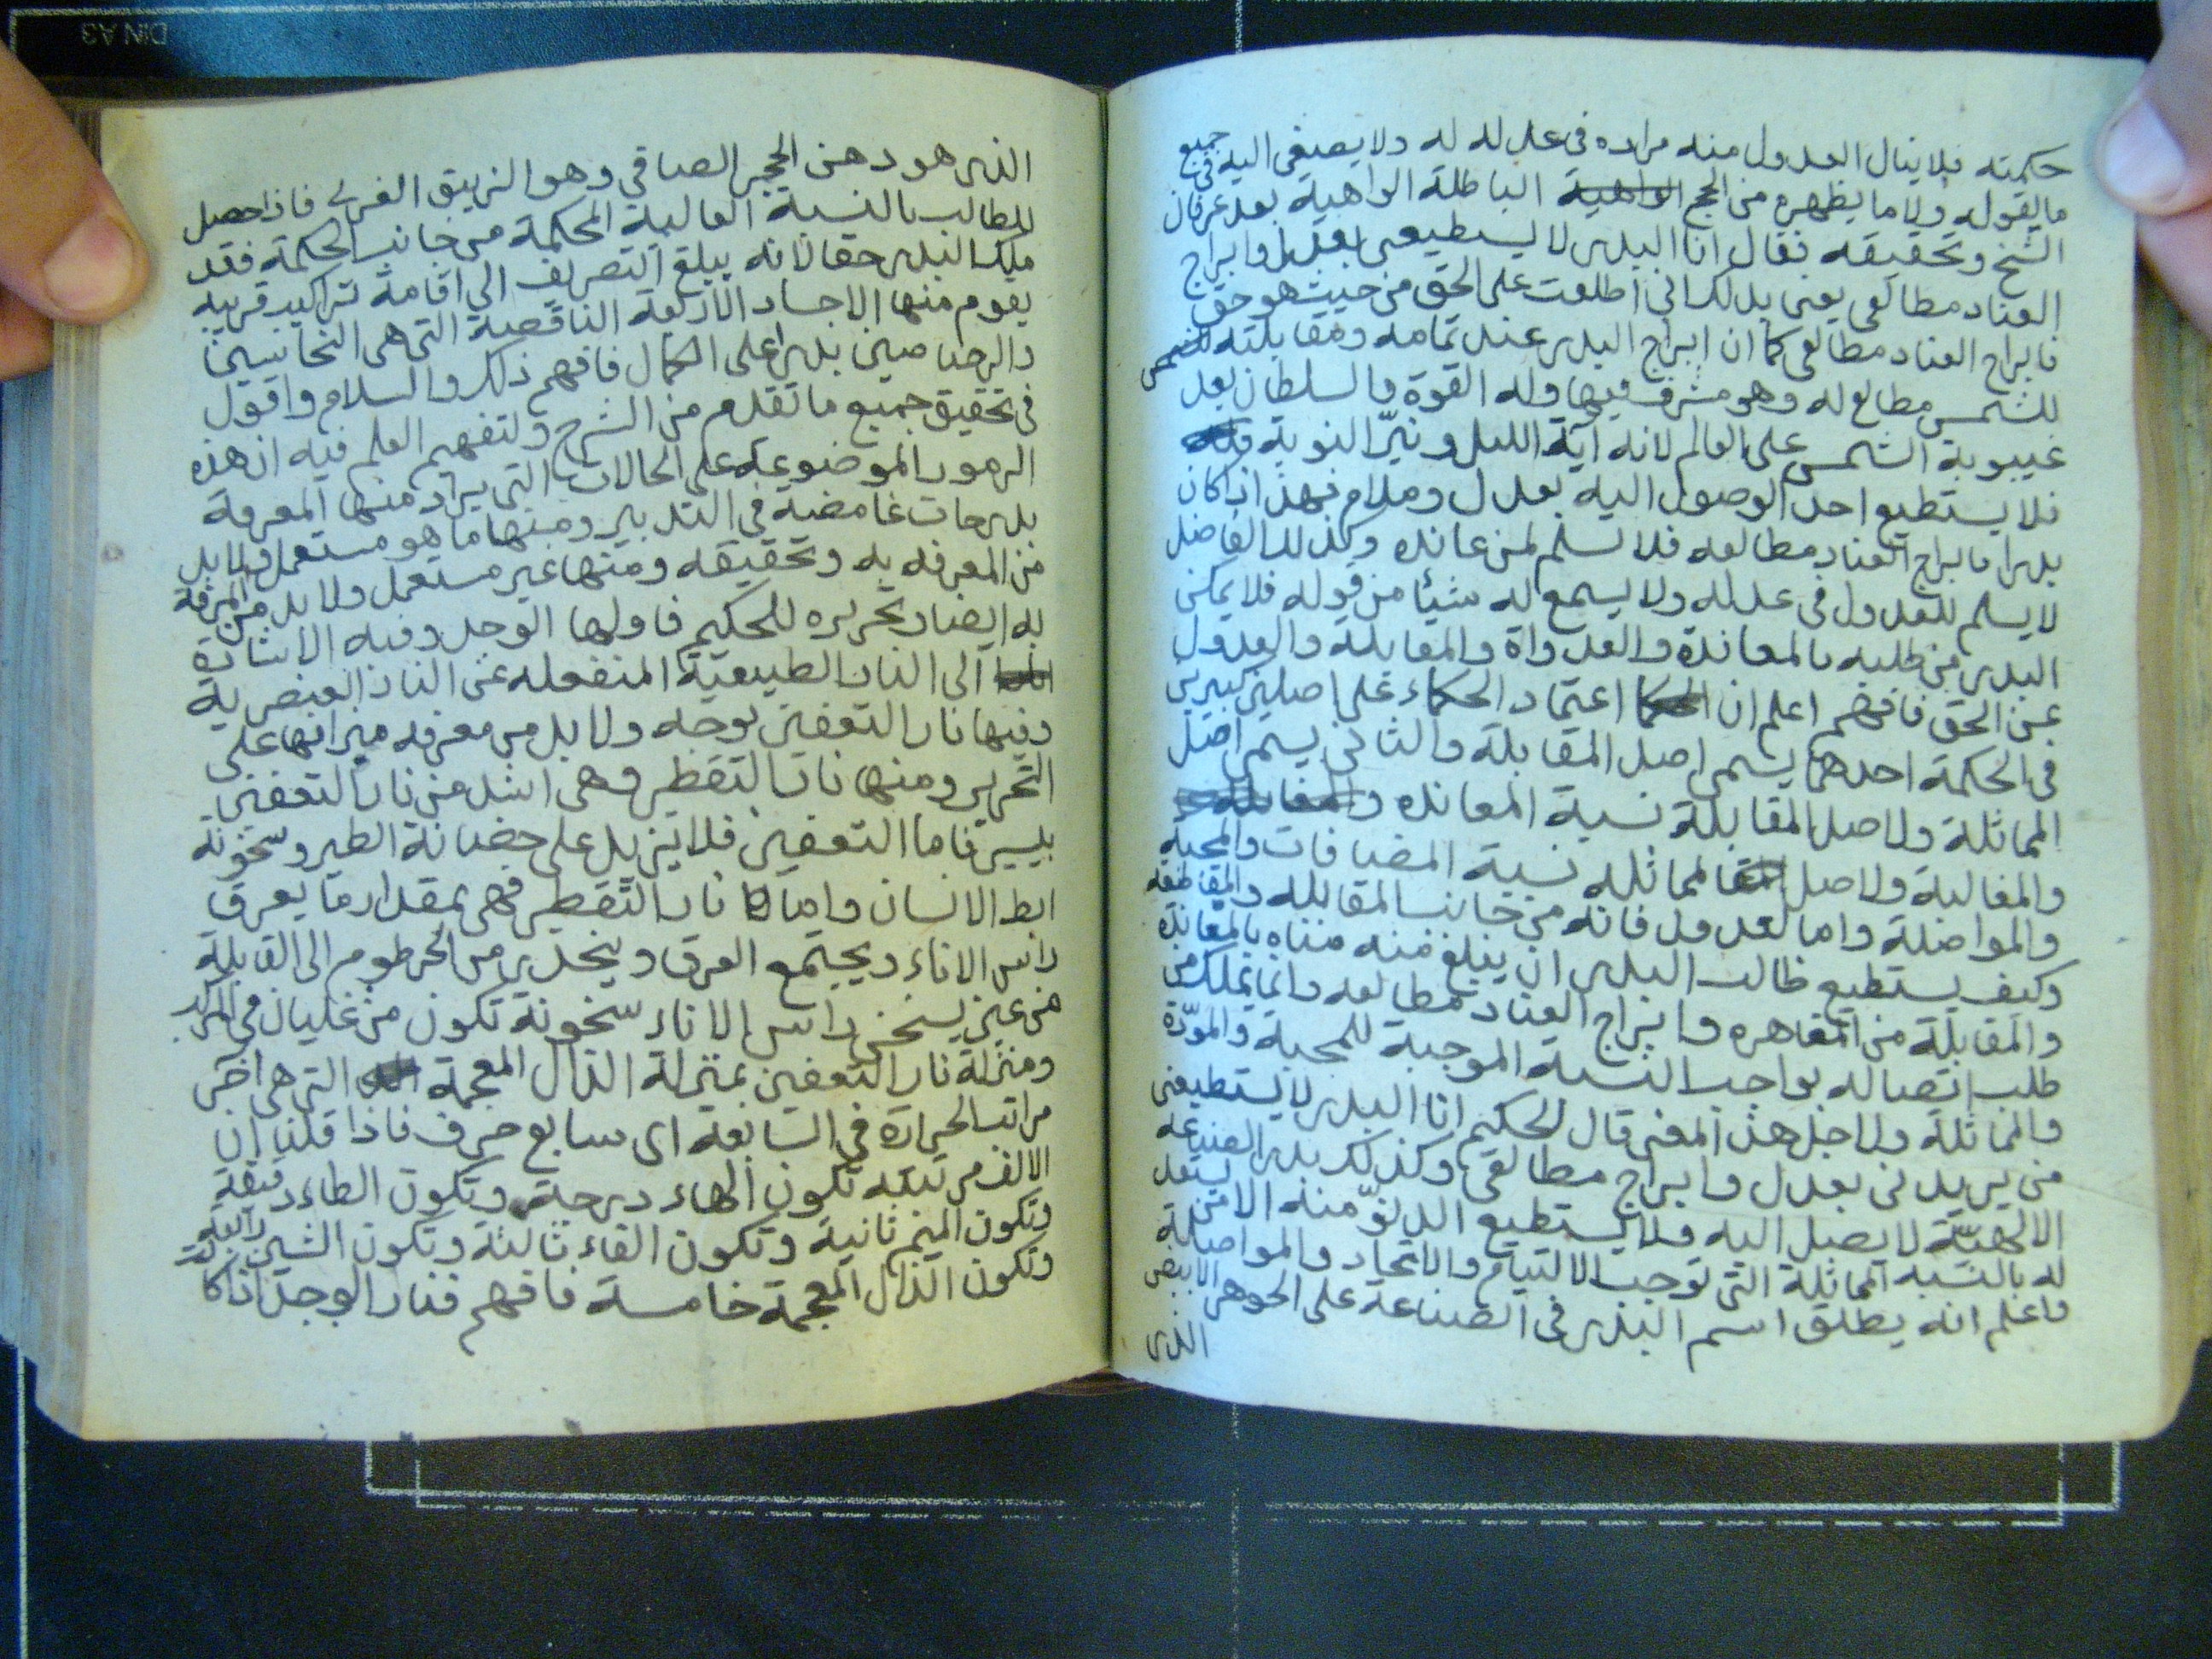 حكمته فلا ينال العدول منه مراده فى عدله له ولا يصيفى اليه فى جميع
ما يقوله ولا ما يظهره من الحجج الباطلة الواهية بعد عرفان
الشيخ وتحقيقه فقال انا البدرى لا يستطيعى بعدل وابراج
العناد مطالعى يعنى بذلك انى اطلعت على الحق من حيث هو حق
فابراج العناد مطالعى كما ان ابراج البدر عند تمامه ومقابلته للشمس
للشمس مطالع له وهو مشرف فيها وله القوة والسلطان بعد
غيبوبة الشمس على العالم لانه آية الليل ونيّر النوبة
فلا يستطيع احد الوصول اليه بعدل وملام فهذا اذا كان
بدرا فابراج العناد مطالعه فلا تسلم لمن عانده وكذلك الفاضل
لا يسلم للعدول فى عدله ولا يسمع له شيئا من قوله فلا يمكن
البدر من طلبه بالمعاندة والعداوة والمقابلة والعدول
عن الحق فافهم اعلم ان اعتماد الحكماء على اصلين كبيرين
فى الحكمة احدهما يسمى اصل المقابلة والثانى يسمى اصل
المماثلة ولاصل المقابلة نسبة المعانده
والمغالبة ولاصل المماثله نسبة المضافات والمحبة
والمواصلة واما العدول فانه من جانب المقابلة والمقاطعه
وكيف يستطيع طالب البدر ان يبلغ منه مناه بالمعاندة
والمقابلة من المقاهره وابراج العناد مطالعه وانما يملك من
طلب اتصاله بواجب النسبة الموجبة للمحبة والمودّة
والمماثلة ولاجل هذا المعنى قال الحكيم انا البدر لا يستطيعنى
من يريدنى بعدل وابراج مطالعى وكذلك بدر الصنعه
الالهيّة لا يصل اليه ولا يستطيع الدنوّ منه الا من يستعد
له بالنسبه المماثلة التى توجب الالتيام والاتحاد والمواصلة
فاعلم انه يطلق اسم البدر فى الصناعة على الجوهر الابيض
الذى
الذى هو دهن الحجر الصافى وهو الزيبق الغربى فاذا حصل
للطالب بالنسبة العالية المحكمة من جانب الحكمة فقد
ملك البدر حقا لانه يبلغ التصريف الى اقامة تراكيب قريبه
يقوم منها الاجساد الاربعة الناقصة التى هى النحاسين
والرصاصين بدرا على الكمال فافهم ذلك والسلام واقول
فى تحقيق جميع ما تقدم من الشرح ولتفهم العلم فيه ان هذه
الرموز الموضوعة على الحالات التى يراد منها المعرفة
بدرجات غامضة فى التدبير ومنها ما هو مستعمل ولا بد
من المعرفه به وتحقيقه ومنها غير مستعمل ولا بد من المعرفة
به ايضا وتحريره للحكيم فاولها الوجد وفيه الاشارة
الى النار الطبيعية المنفعله عن النار العنصرية
وفيها نار التعفين بوجه ولا بد من معرفه ميزانها على
التحرير ومنها نار التقطير وهى اشد من نار التعفين
بيسير فاما التعفين فلا يزيد على حضانة الطير وسخونة
ابط الانسان واما نار التقطير فهى بمقدار ما يعرق
راس الاناء ويجتمع العرق وينحدر من الخرطوم الى القابلة
من غير يسخن راس الاناء سخونة تكون من غليان فى المركب
ومنزلة نار التعفين بمنزلة الذال المعجمة التى هى آخر
مراتب الحرارة فى السابعة اى سابع حرف فاذا قلنا ان
الالف مرتبته تكون الهاء درجة وتكون الطاء دقيقة
وتكون الميم ثانية وتكون الفاء ثالثة وتكون الشين رابعة
وتكون الذال المعجمة خامسة فافهم فنار الوجد اذا كانت